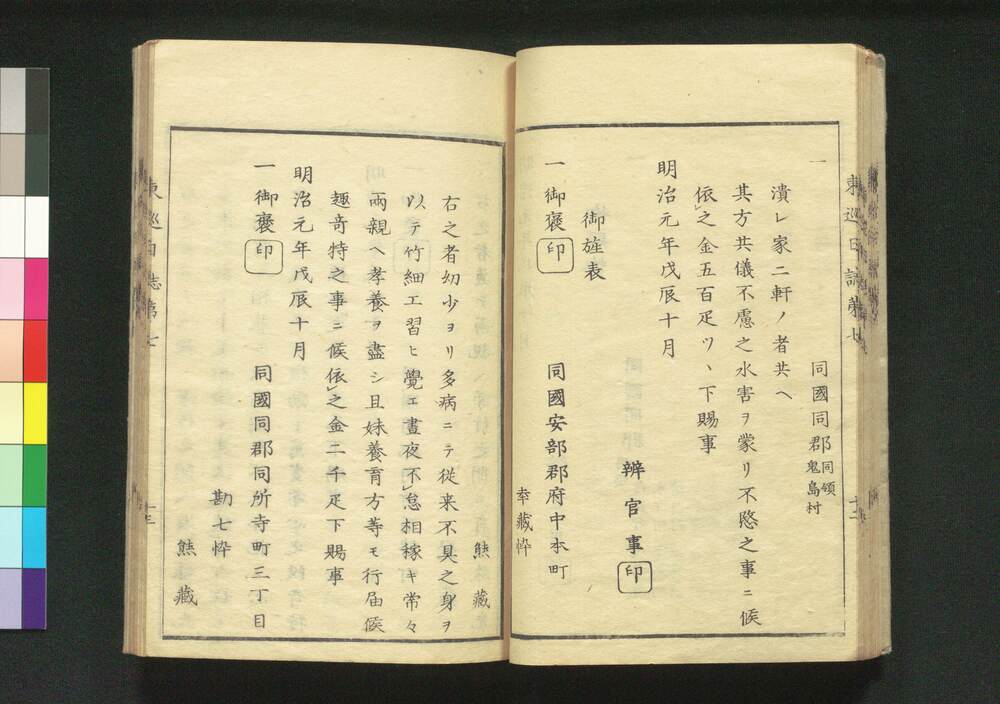 東巡日誌第七
十二
一
同國同郡同領鬼島村
潰レ家二軒ノ者共ヘ
其方共儀不慮之水害ヲ蒙リ不愍之事ニ候
依之金五百疋ツヽ下賜事
明治元年戊辰十月
辨官事印
御旌表
一御褒印 同國安部郡府中本町
幸藏忰
熊藏
右之者幼少ヨリ多病ニテ従来不具之身ヲ
以テ竹細工習ヒ覺エ晝夜不怠相稼キ常々
兩親ヘ孝養ヲ盡シ且妹養育方等モ行届候
趣奇特之事ニ候依之金二千疋下賜事
明治元年戊辰十月
一御褒印 同國同郡同所寺町三丁目
勘七忰
熊藏
東巡日誌第七
十三